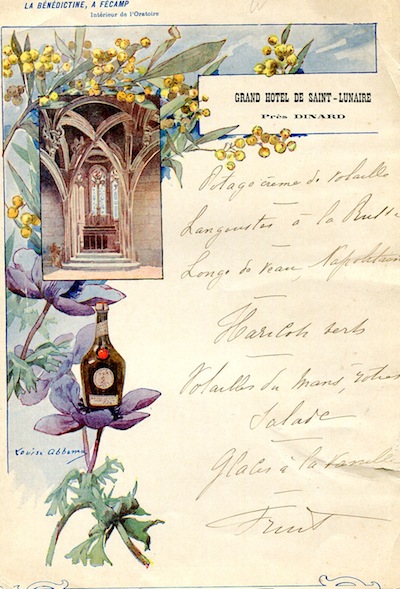 LA BÉNÉDICTINE, A FÉCAMP
Intérieur de l'Oratoire
GRAND HOTEL DE SAINT-LUNAIRE
Près DINARD
Potage crème de volaille
Langoustes à la Russe
Longe de veau, Napolitain
Haricots verts
Volailles du Mans, roties
Salade
Glaces à la vanille
Fruit
Louise Abbema